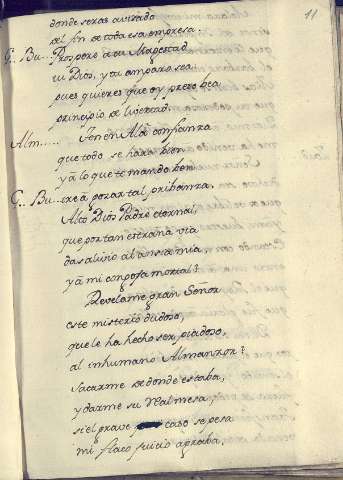 11
donde seras avisado
del fin de toda esa empresa.
G. Bu.... Prospere a tu Magestad
tu Dios, y tu amparo sea
pues quieres que oy preso vea
principio de libertad.
Alm..... Ten en Alà confianza
que todo se hara bien
y à lo que te mando ven
G. Bu... irè a gozar tal pribanza.
Alto Dios, Padre eternal,
que por tan estraña via
das alivio al ansia mia,
y à mi congoja mortal?
Revelame gran Señor
este misterio dudoso,
que le ha hecho ser piadoso,
al inhumano Almanzor?
Sacarme de donde estaba,
y darme su Real mesa,
si el grave caso se pesa
mi flaco juicio agraba,